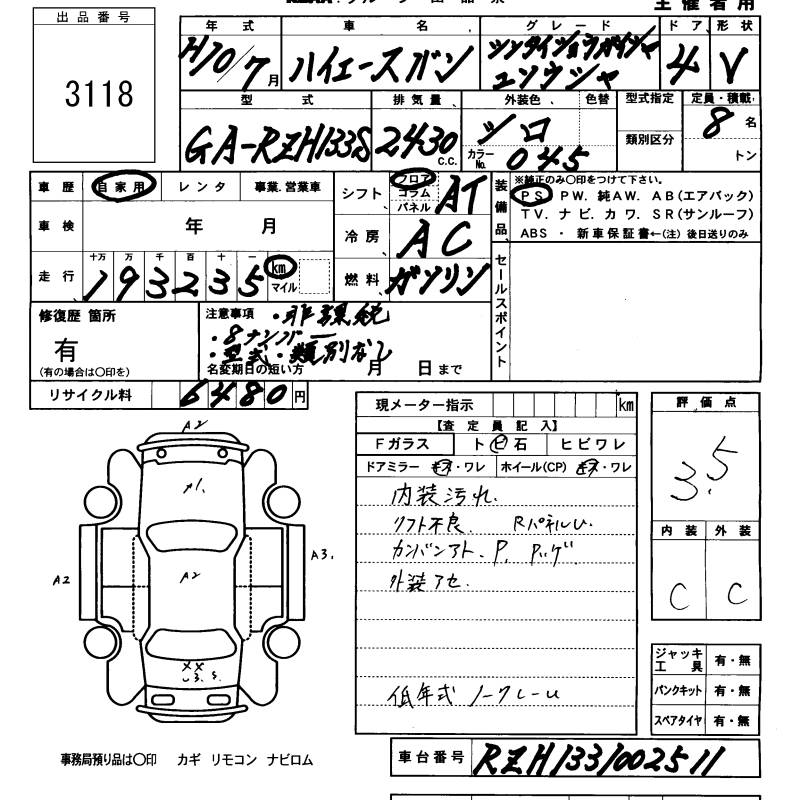 主催者用
出品番号
3118
年式 車名 グレード ドア 形状
H10/7月 ハイエースバン シンタイショウガイシャ 4 V
ユソウシャ
型式 排気量 外装色 色替 型式指定 定員・積載
GA-RZH133S 2430 C.C. シロ 8名
カラーNo. 045 類別区分 トン
車歴 自家用 レンタ 事業.営業車
シフト フロア コラム パネル AT
装備品 ※純正のみ〇印をつけて下さい。
PS PW. 純AW. AB(エアバック)
TV. ナビ. カワ. SR(サンルーフ)
ABS ・ 新車保証書←(注) 後日送りのみ
車検 年 月
冷房 AC
セールスポイント
十万 万 千 百 十 一
走行 193235 km マイル
燃料 ガソリン
修復歴 箇所
有
(有の場合は〇印を)
注意事項 ・非課税
・8ナンバー
・型式・類別なし
名変期日の短い方 月 日まで
リサイクル料 6480円
現メーター指示 km
評価点
3.5
【査定員記入】
Fガラス トビ石 ヒビワレ
ドアミラー キズ・ワレ ホイール(CP) キズ・ワレ
内装汚れ.
リフト不良. RパネルU.
カンバンアト. P. Pッゲ.
外装アセ.
低年式 ノークレーム
内装 外装
C C
A2
A1.
A2
A2
A3.
XX
U3. S.
ジャッキ工具 有・無
パンクキット 有・無
スペアタイヤ 有・無
事務局預り品は〇印 カギ リモコン ナビロム
車台番号 RZH1331002511